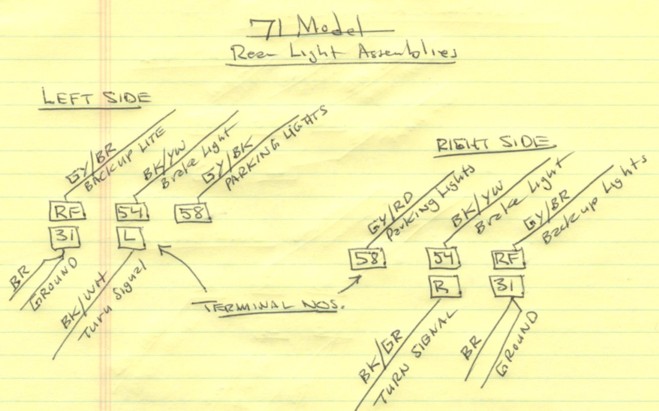 71 Model
Rear Light Assemblies
LEFT SIDE
GY/BR
BACKUP LITE
BK/YW
Brake Light
GY/BK
PARKING LIGHTS
RF
54
58
31
L
BR
GROUND
BK/WH
Turn Signal
TERMINAL NOS.
RIGHT SIDE
GY/RD
Parking Lights
BK/YW
Brake Light
GY/BR
Backup Lights
58
54
RF
R
31
BK/GR
TURN SIGNAL
BR
GROUND